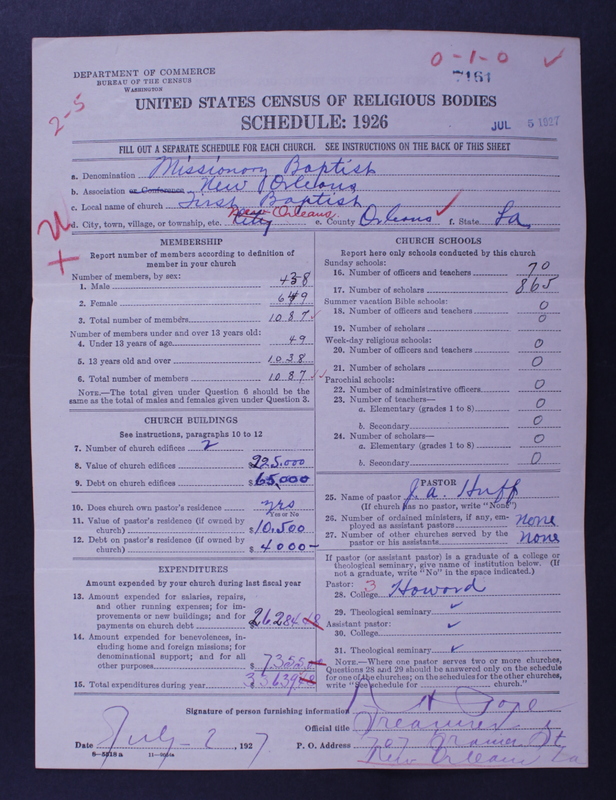 0-1-0 ✓
7161
DEPARTMENT OF COMMERCE
BUREAU OF THE CENSUS
WASHINGTON
2-5
UNITED STATES CENSUS OF RELIGIOUS BODIES
SCHEDULE: 1926
JUL 5 1927
FILL OUT A SEPARATE SCHEDULE FOR EACH CHURCH. SEE INSTRUCTIONS ON THE BACK OF THIS SHEET
a. Denomination Missionary Baptist
b. Association or Conference New Orleans
c. Local name of church First Baptist
d. City, town, village, or township, etc. City New Orleans e. County Orleans ✓ f. State La
MEMBERSHIP
Report number of members according to definition of
member in your church
Number of members, by sex:
1. Male 438
2. Female 649
3. Total number of members 1087 ✓
Number of members under and over 13 years old:
4. Under 13 years of age 49
5. 13 years old and over 1038
6. Total number of members 1087 ✓✓
NOTE.—The total given under Question 6 should be the
same as the total of males and females given under Question 3.
CHURCH BUILDINGS
See instructions, paragraphs 10 to 12
7. Number of church edifices 2
8. Value of church edifices $225.000
9. Debt on church edifices $65,000
10. Does church own pastor's residence yes
Yes or No
11. Value of pastor's residence (if owned by
church) $10,500
12. Debt on pastor's residence (if owned by
church) $4000—
EXPENDITURES
Amount expended by your church during last fiscal year
13. Amount expended for salaries, repairs,
and other running expenses; for im-
provements or new buildings; and for
payments on church debt 26284
14. Amount expended for benevolences, in-
cluding home and foreign missions; for
denominational support; and for all
other purposes $7355
15. Total expenditures during year 33639
CHURCH SCHOOLS
Report here only schools conducted by this church
Sunday schools:
16. Number of officers and teachers 70
17. Number of scholars 865
Summer vacation Bible schools:
18. Number of officers and teachers 0
19. Number of scholars 0
Week-day religious schools:
20. Number of officers and teachers 0
21. Number of scholars 0
Parochial schools:
22. Number of administrative officers 0
23. Number of teachers—
a. Elementary (grades 1 to 8) 0
b. Secondary 0
24. Number of scholars—
a. Elementary (grades 1 to 8) 0
b. Secondary 0
PASTOR
25. Name of pastor J. A. Huff
(If church has no pastor, write "None")
26. Number of ordained ministers, if any, em-
ployed as assistant pastors none
27. Number of other churches served by the
pastor or his assistants none
If pastor (or assistant pastor) is a graduate of a college or
theological seminary, give name of institution below. (If
not a graduate, write "No" in the space indicated.)
Pastor: 3
28. College Howard
29. Theological seminary ✓
Assistant pastor:
30. College ✓
31. Theological seminary ✓
NOTE.—Where one pastor serves two or more churches,
Questions 28 and 29 should be answered only on the schedule
for one of the churches; on the schedules for the other churches,
write "See schedule for church."
Signature of person furnishing information H Pope
Official title Treasurer
Date July 2, 1927. P. O. Address 707 St
New Orleans La
8—5818 a